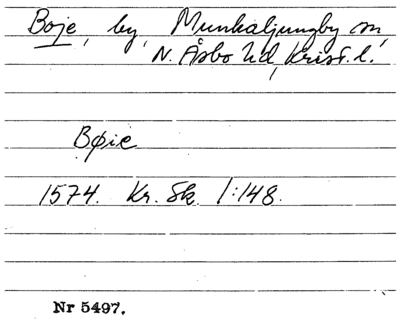 Boje, by, Munkaljungby sn,
N. Åsbo hd, Krist. l.
Bøie
1574. Kr. Sk. 1:148.
Nr 5497.